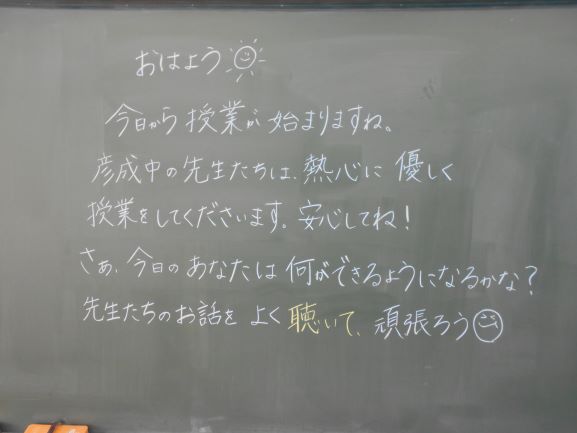 おはよう
今日から授業が始まりますね。
彦成中の先生たちは、熱心に優しく
授業をしてくださいます。安心してね！
さぁ、今日のあなたは何ができるようになるかな？
先生たちのお話をよく聴いて、頑張ろう